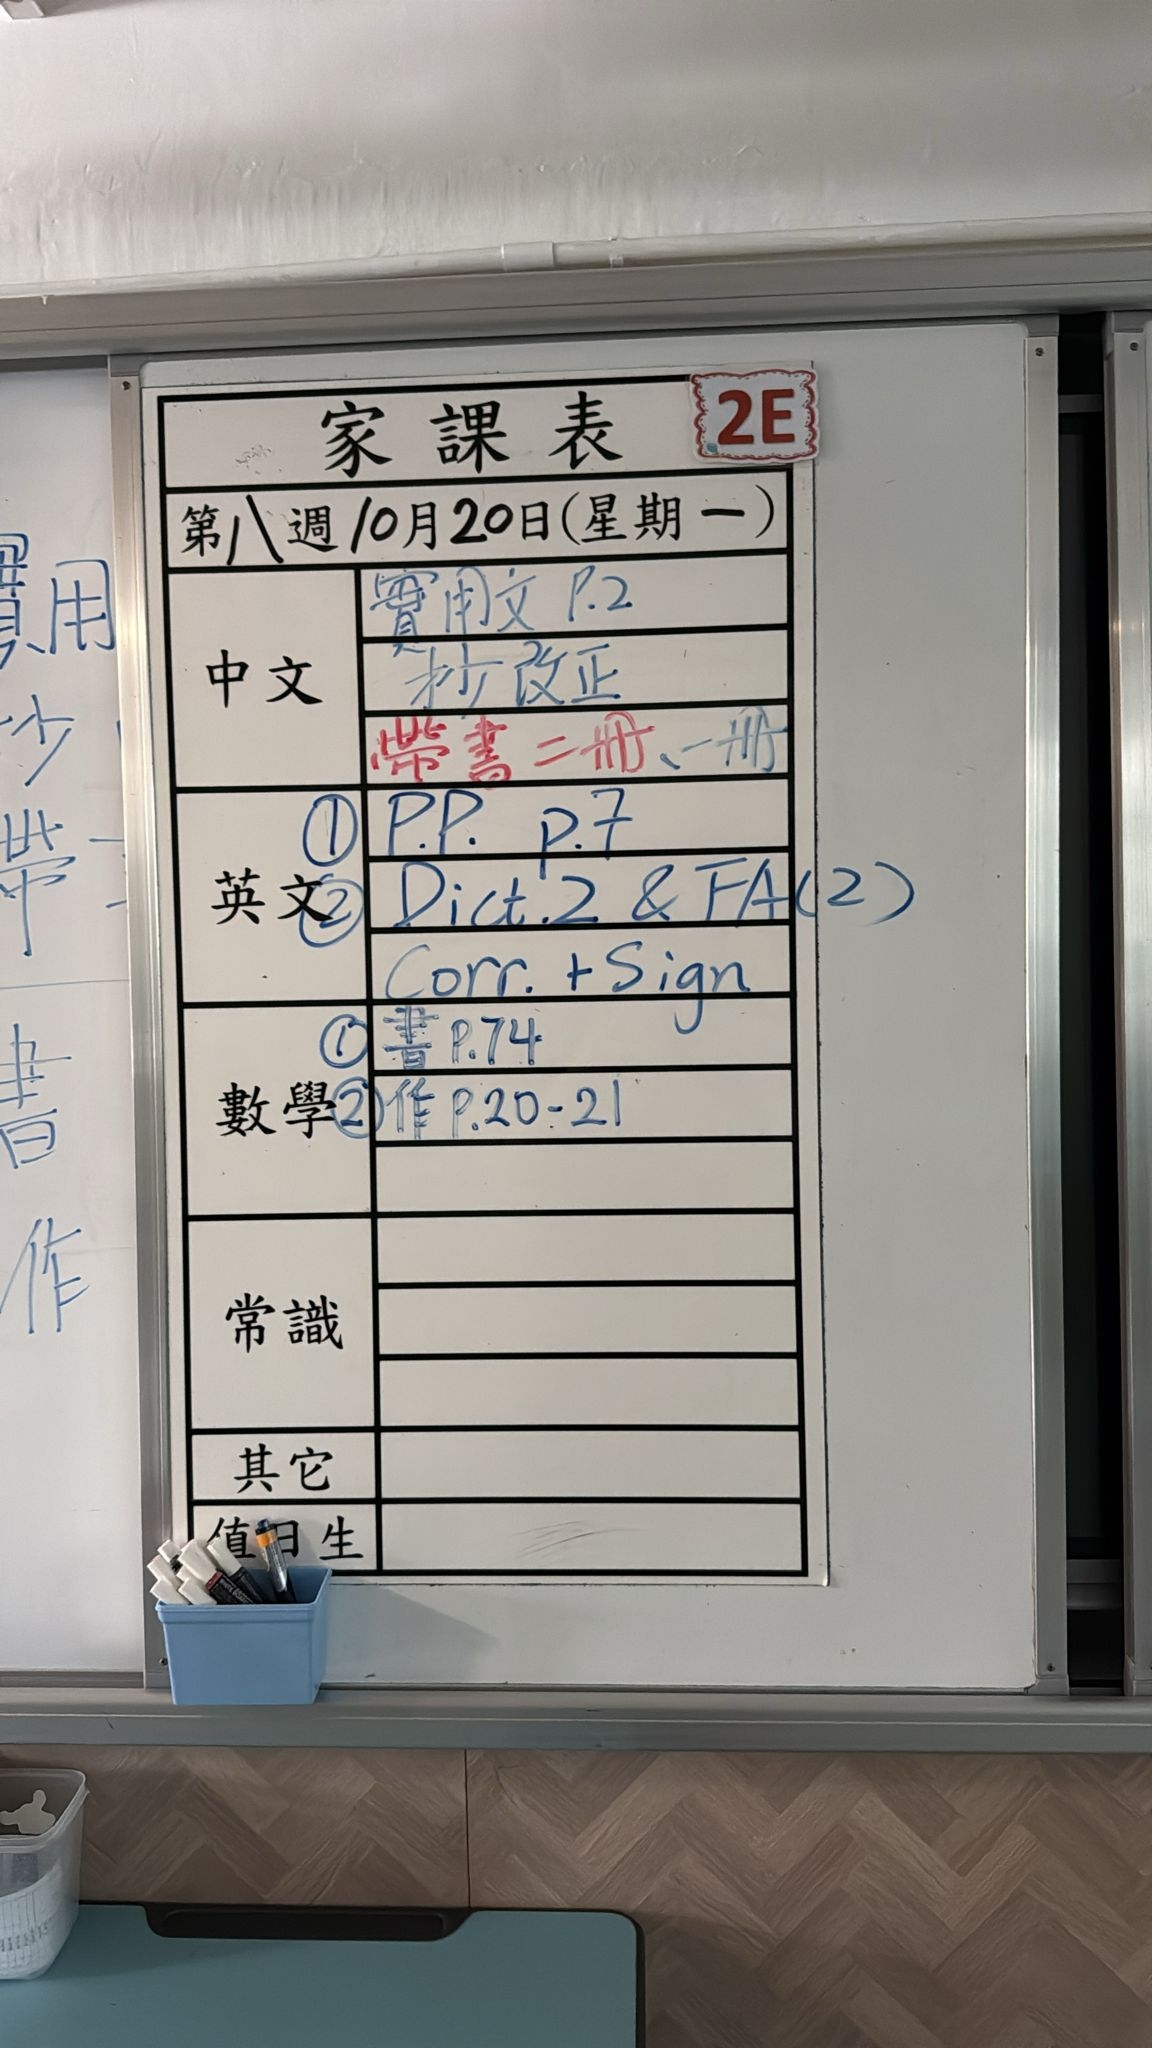 家課表
2E
第八週10月20日(星期一)
中文
實用文 P.2
抄改正
帶書二冊、一冊
英文
① P.P. p.7
② Dict.2 & FA(2)
Corr. + Sign
數學
① 書 P.74
② 作 P.20-21
常識
其它
值日生
用
抄
帶
書
作